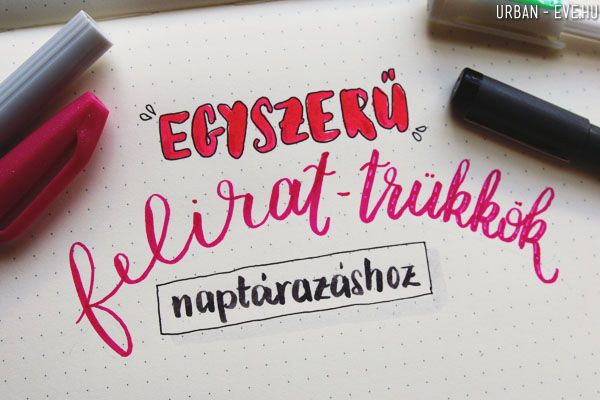 URBAN - EVE.HU
EGYSZERŰ
felirat-trükkök
naptárazáshoz